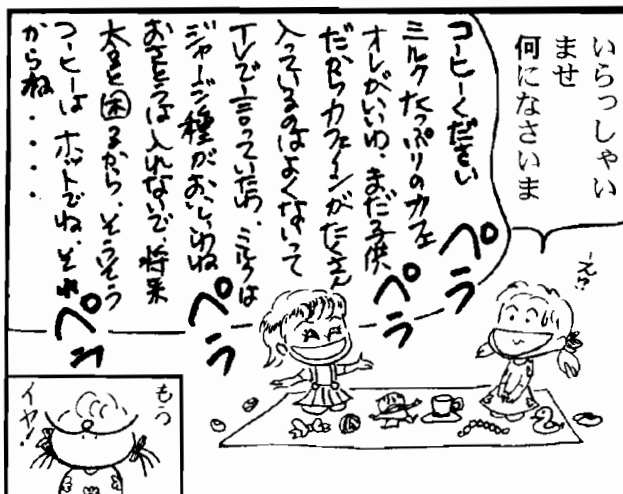 いらっしゃい
ませ
何になさいま
えっ?
コーヒーください
ミルクたっぷりのカフェ
オレがいいわ、まだ子供
だからカフェインがたくさん
入っているのはよくないって
TVで言っていたわ、ミルクは
ジャージー種がおいしいわね
おさとうは入れないで、将来
太ると困るから、そうそう
コーヒーはホットでね、それ
からね・・・・
ペラ
ペラ
ペラ
ペラ
もう
イヤ!